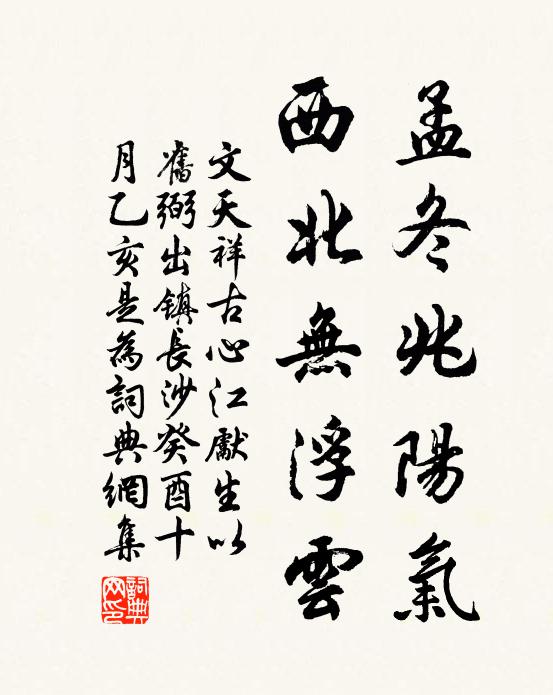 孟冬兆陽氣
西北無浮雲
文天祥古心江獻生以
舊弼出鎮長沙癸酉十
月乙亥是為詞典網集
詞典网印